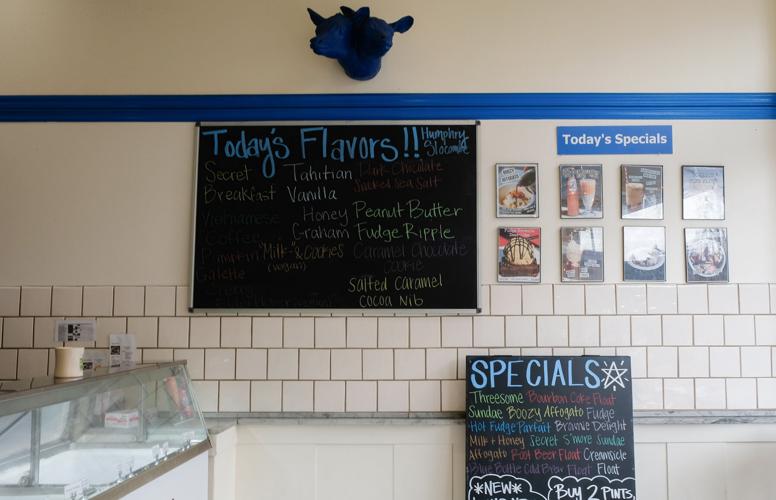 Today's Flavors!! Humphry
Slocombe
Secret
Breakfast
Vietnamese
Coffee
Pumpkin
Galette
Tahitian
Vanilla
Honey
Graham
"Milk" & Cookies
(vegan)
Dark Chocolate
Smoked Sea Salt
Peanut Butter
Fudge Ripple
Caramel Chocolate
Cookie
Salted Caramel
Cocoa Nib
Today's Specials
SPECIALS
Threesome Bourbon Coke Float
Sundae Boozy Affogato Fudge
Hot Fudge Parfait Brownie Delight
Milk + Honey Secret S'more Sundae
Affogato Root Beer Float Creamsicle
Blue Bottle Cold Brew Float Float
*NEW* BUY 2 PINTS,